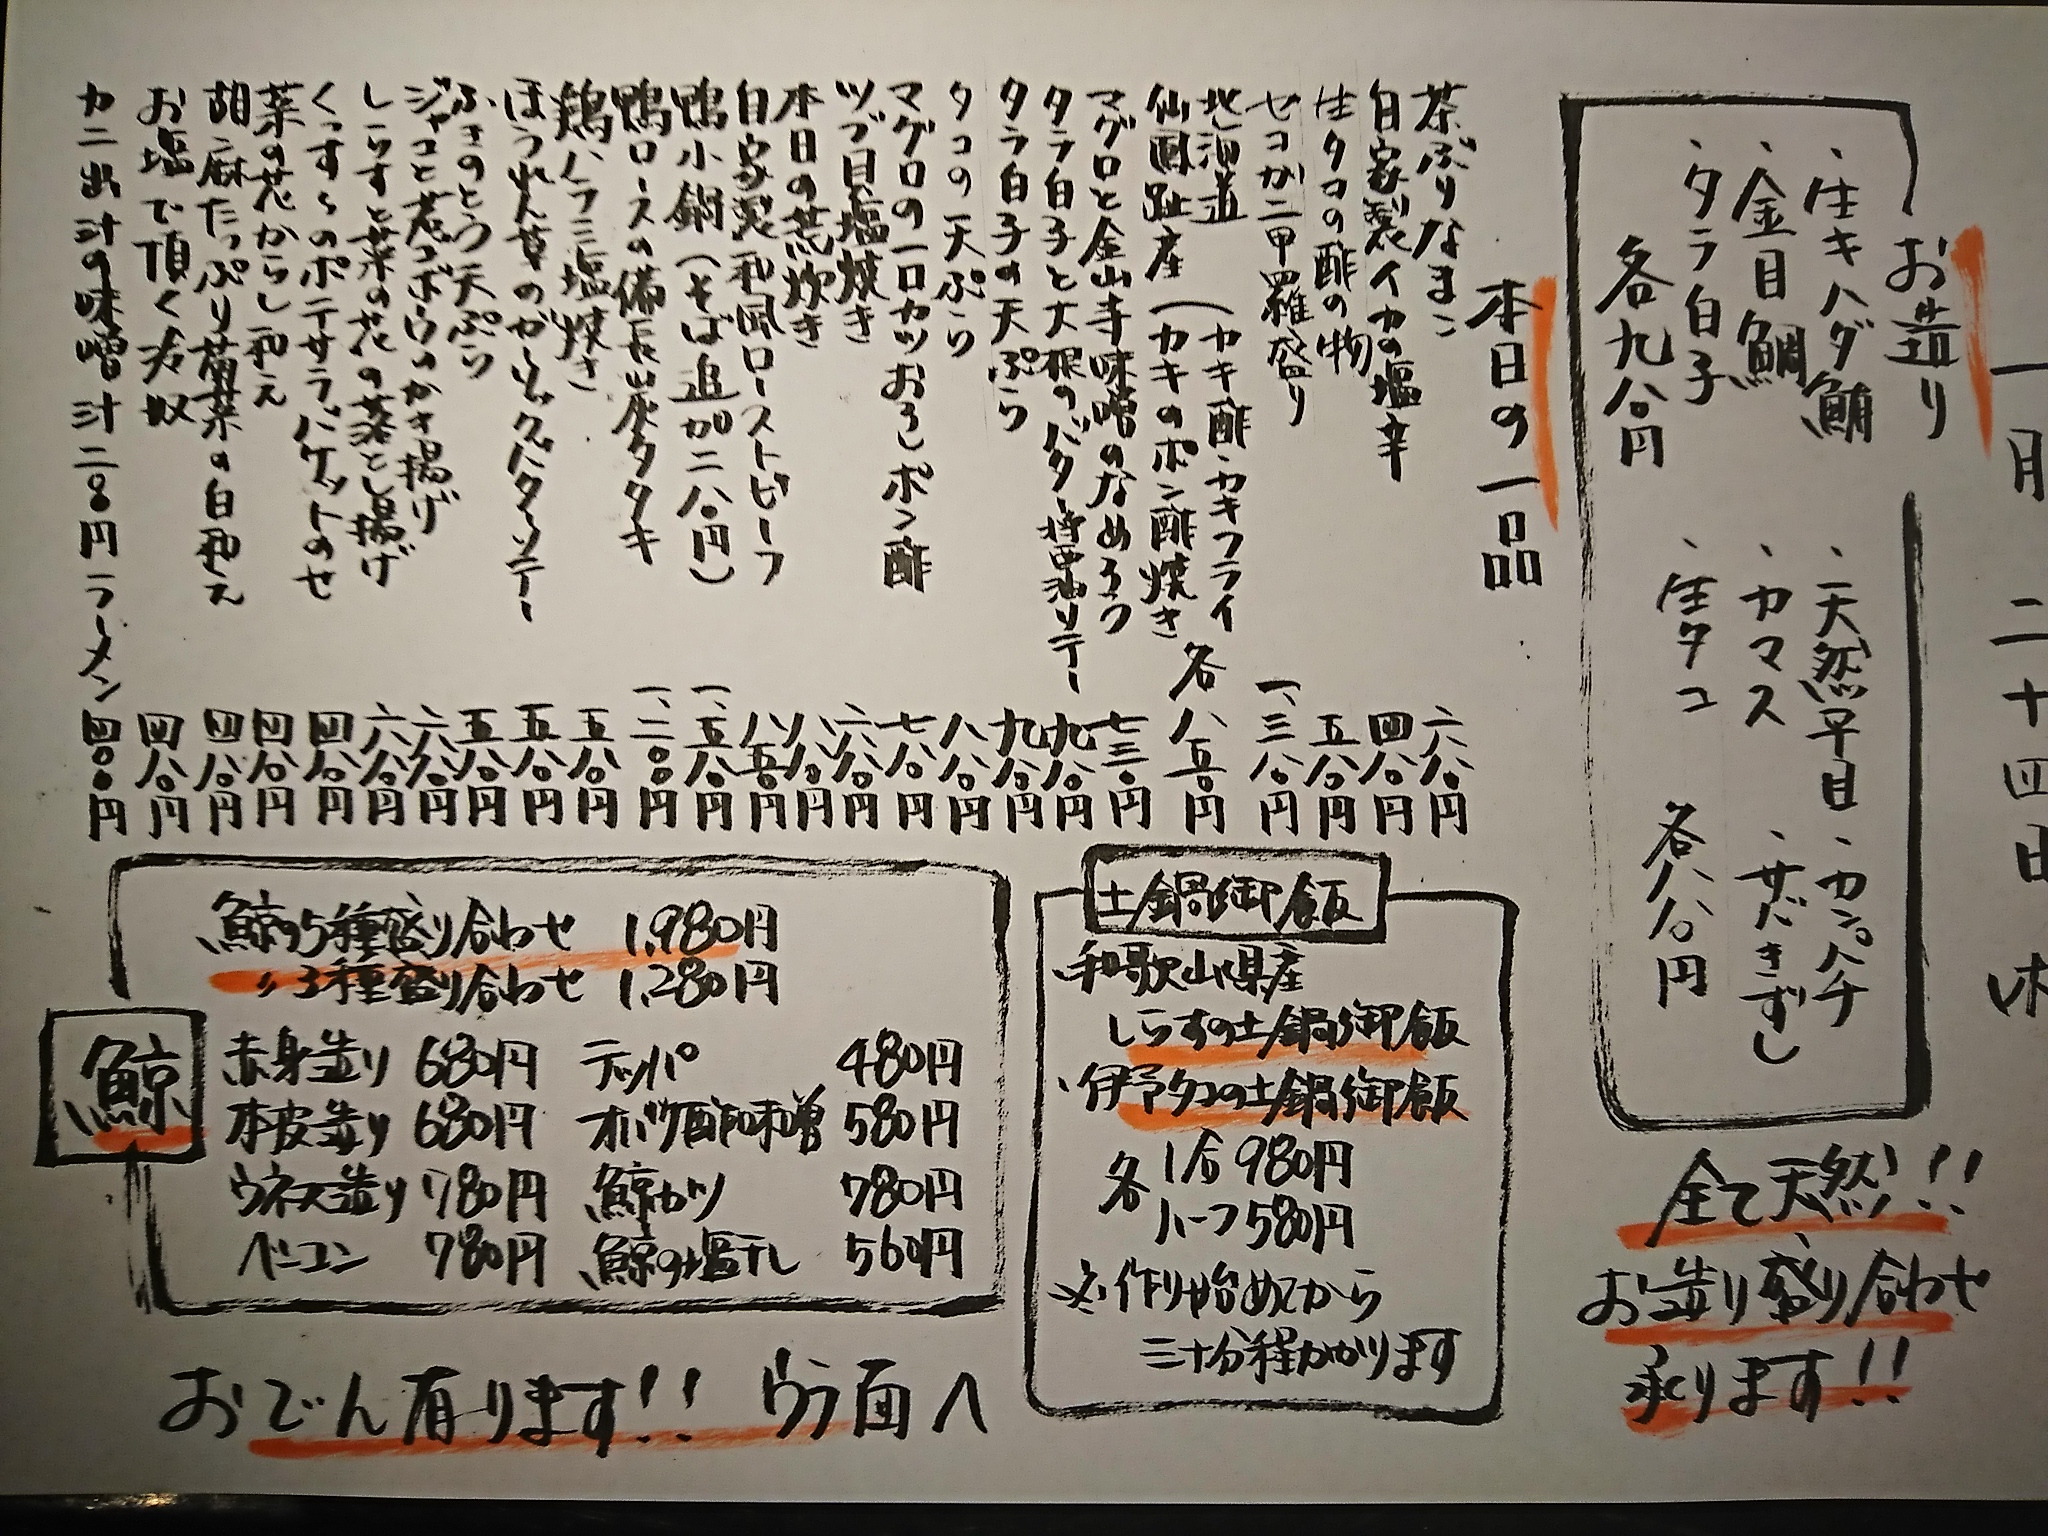 一月二十四日
お造り
・生キハダ鮪
・金目鯛
・タラ白子
各九八〇円
・天然平目・カンパチ
・カマス・サバきずし
・生タコ
各八八〇円
全て天然!!
お造り盛り合わせ
承ります!!
本日の一品
茶ぶりなまこ 六八〇円
自家製イカの塩辛 四八〇円
生タコの酢の物 五八〇円
セコガニ甲羅盛り 一、三八〇円
北海道 (カキ酢・カキフライ
仙鳳趾産 (カキのポン酢焼き 各八五〇円
マグロと金山寺味噌のなめろう 七三〇円
タラ白子と大根のバター醤油ソテー 九八〇円
タラ白子の天ぷら 九八〇円
タコの天ぷら 八八〇円
マグロの一口カツおろしポン酢 七八〇円
ツブ貝塩焼き 六八〇円
本日の荒炊き 八八〇円
自家製和風ローストビーフ 八五〇円
鴨小鍋(そば追加二八〇円) 一、五八〇円
鴨ロースの備長炭タタキ 一、二〇〇円
鶏ハラミ塩焼き 五八〇円
ほうれん草のガーリックバターソテー 五八〇円
ふきのとう天ぷら 五八〇円
ジャコと若ゴボウのかき揚げ 六八〇円
しらすと菜の花の落とし揚げ 六八〇円
くつすのポテサラバケットのせ 四八〇円
菜の花からし和え 四八〇円
胡麻たっぷり菊菜の白和え 四八〇円
お塩で頂く冷奴 四八〇円
カニ出汁の味噌汁二八〇円ラーメン 四八〇円
土鍋御飯
・和歌山県産
しらすの土鍋御飯
・伊予タコの土鍋御飯
各 1合980円
ハーフ580円
※作り始めてから
三十分程かかります
鯨
鯨の5種盛り合わせ 1,980円
〃3種盛り合わせ 1,280円
赤身造り 680円 テッパ 480円
本皮造り 680円 オバケ酢味噌 580円
ウネス造り 780円 鯨カツ 780円
ベーコン 780円 鯨の塩干し 560円
おでん有ります!! ウラ面へ